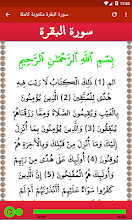 17:54
سورة البقرة مكتوبة كاملة
سورة البقرة
بِسْمِ اللَّهِ الرَّحْمَنِ الرَّحِيمِ
الم (1) ذَلِكَ الْكِتَابُ لَا رَيْبَ فِيهِ
هُدًى لِلْمُتَّقِينَ (2) الَّذِينَ يُؤْمِنُونَ
بِالْغَيْبِ وَيُقِيمُونَ الصَّلَاةَ وَمِمَّا
رَزَقْنَاهُمْ يُنْفِقُونَ (3) وَالَّذِينَ
يُؤْمِنُونَ بِمَا أُنْزِلَ إِلَيْكَ وَمَا أُنْزِلَ مِنْ
قَبْلِكَ وَبِالْآخِرَةِ هُمْ يُوقِنُونَ (4)
أُولَئِكَ عَلَى هُدًى مِنْ رَبِّهِمْ وَأُولَئِكَ
هُمُ الْمُفْلِحُونَ (5) إِنَّ الَّذِينَ
كَفَرُوا سَوَاءٌ عَلَيْهِمْ أَأَنْذَرْتَهُمْ أَمْ لَمْ